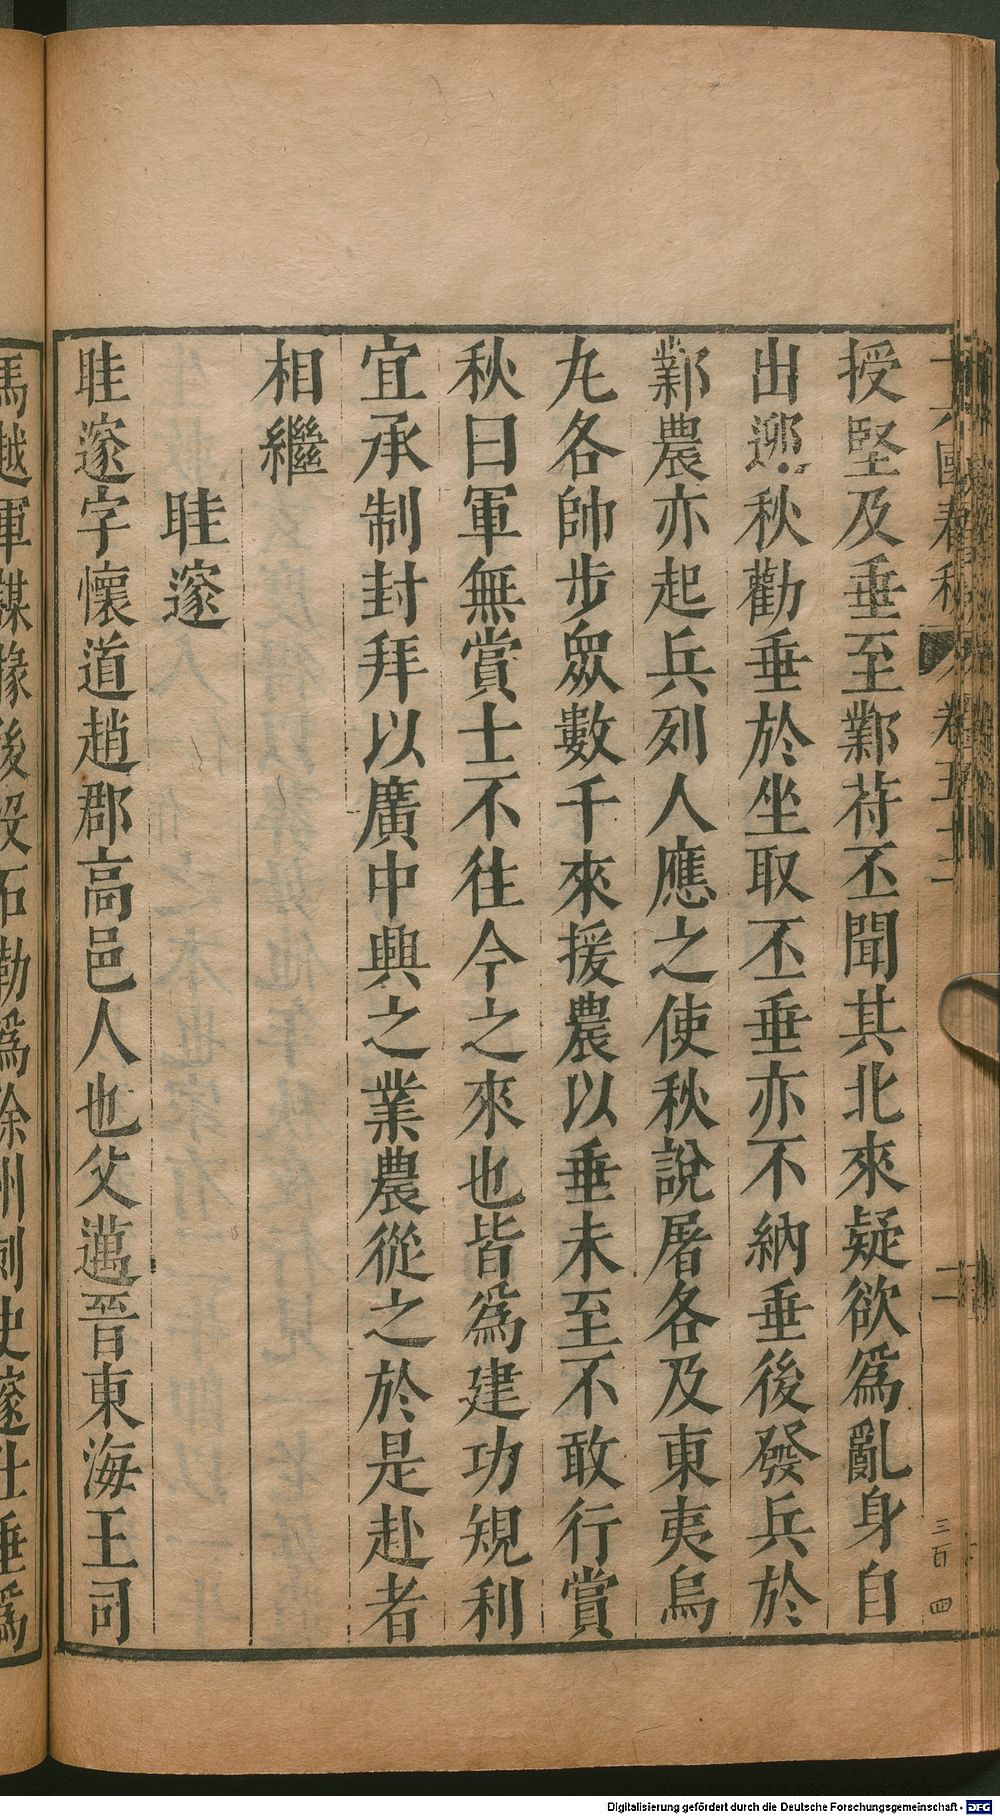 授堅及垂至鄴苻丕聞其北來疑欲爲亂身自
出迎秋勸垂於坐取丕垂亦不納垂後發兵於
鄴農亦起兵列人應之使秋說屠各及東夷烏
丸各帥步眾數千來援農以垂未至不敢行賞
秋曰軍無賞士不往今之來也皆爲建功規利
宜承制封拜以廣中興之業農從之於是赴者
相繼
眭邃
眭邃字懷道趙郡高邑人也父邁晉東海王司
馬越軍謀掾後沒石勒爲徐州刺史邃仕垂爲
十六國春秋
卷五十
二
三百四
Digitalisierung gefördert durch die Deutsche Forschungsgemeinschaft - DFG